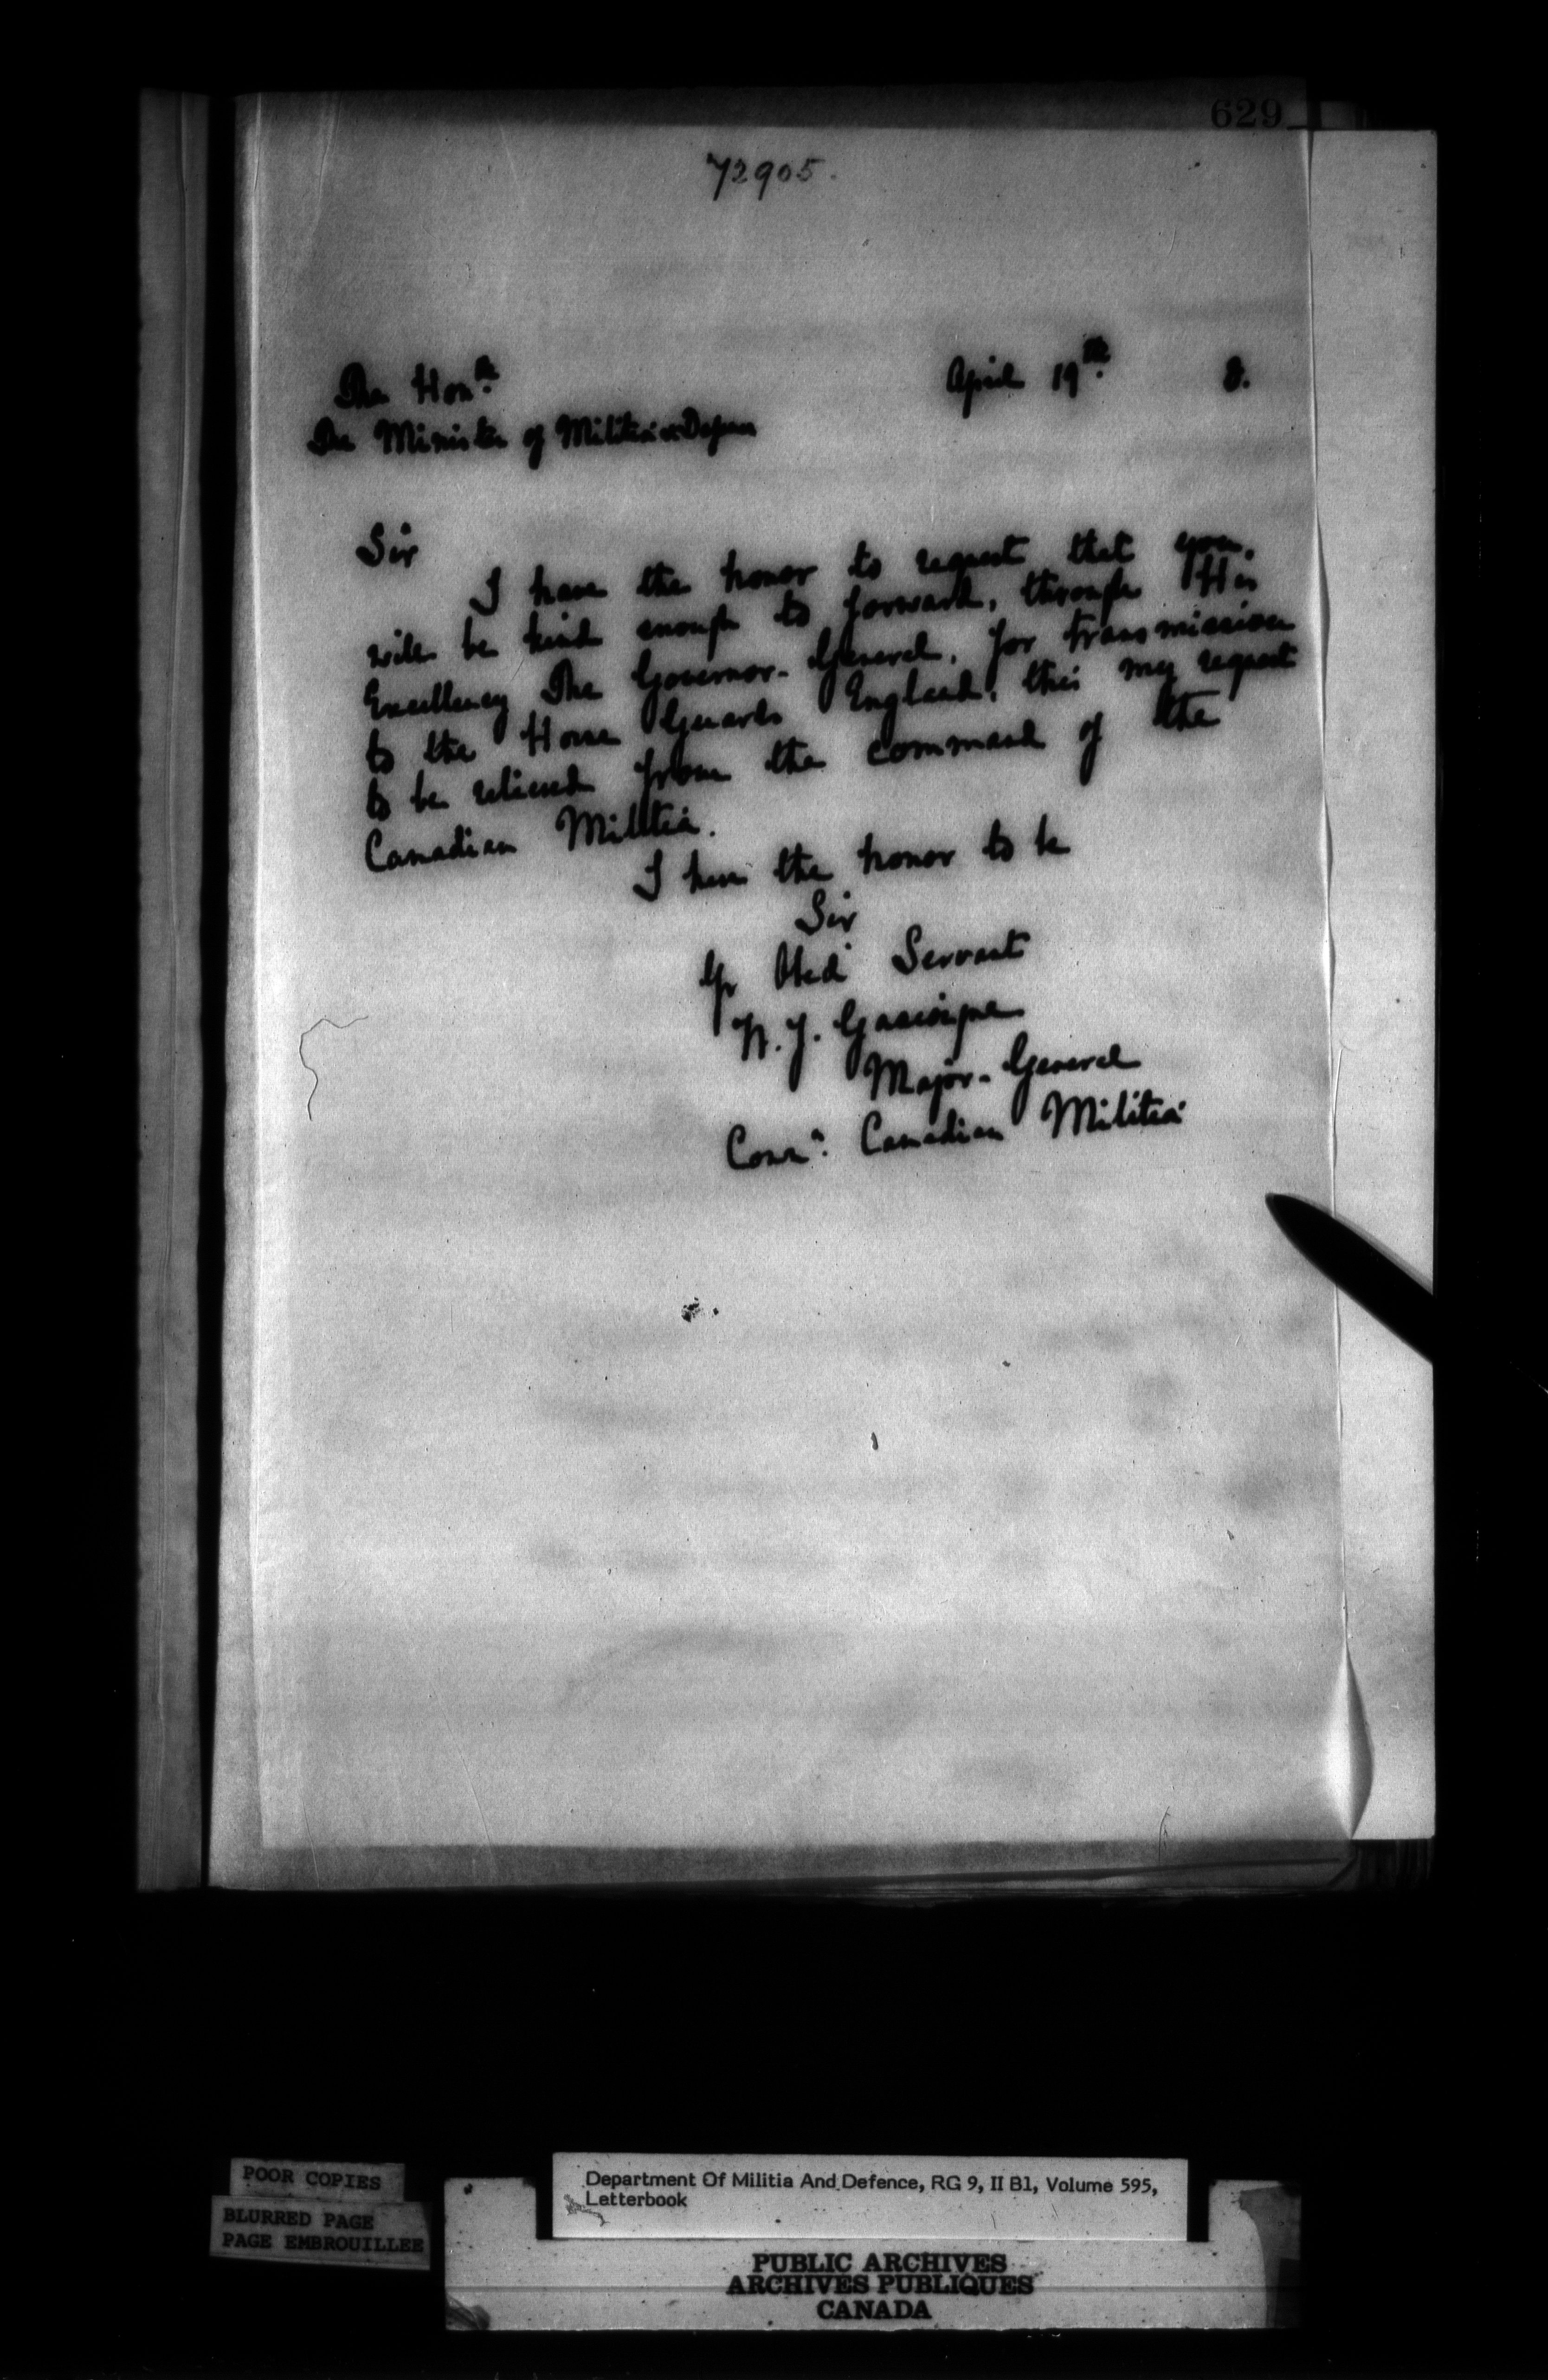 629
72905.
The Honble April 19th. 8.
The Minister of Militia & Defence
Sir
I have the honor to request that you,
will be kind enough to forward, through His
Excellency The Governor-General, for transmission
to the Horse Guards England, this my request
to be relieved from the command of the
Canadian Militia.
I have the honor to be
Sir
Yr Obed Servant
W. J. Gascoigne
Major-General
Comg. Canadian Militia
POOR COPIES
BLURRED PAGE
PAGE EMBROUILLEE
Department Of Militia And Defence, RG 9, II B1, Volume 595,
Letterbook
PUBLIC ARCHIVES
ARCHIVES PUBLIQUES
CANADA